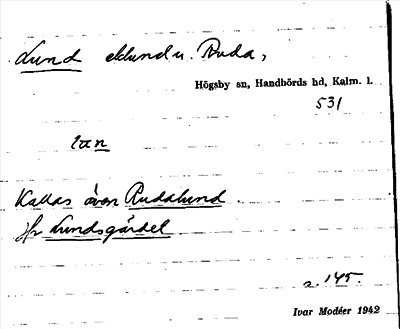 Lund eklund u. Ruda,
Högsby sn, Handbörds hd, Kalm. l.
531
Kallas även Rudalund
jfr Lundsgärdet
a. 145.
Ivar Modéer 1942